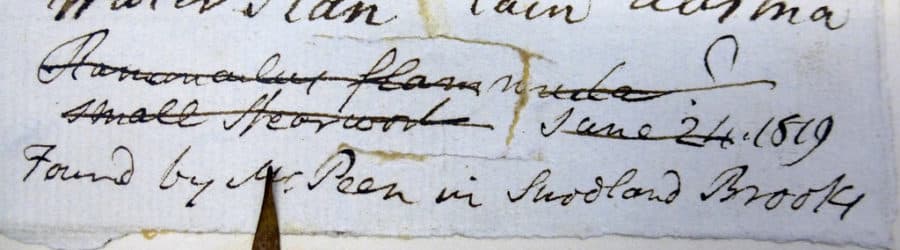 Water Plan tain alisma
Ranunculus flammula
small Spearwort June 24. 1819
Found by Mr. Peen in Snodland Brooks